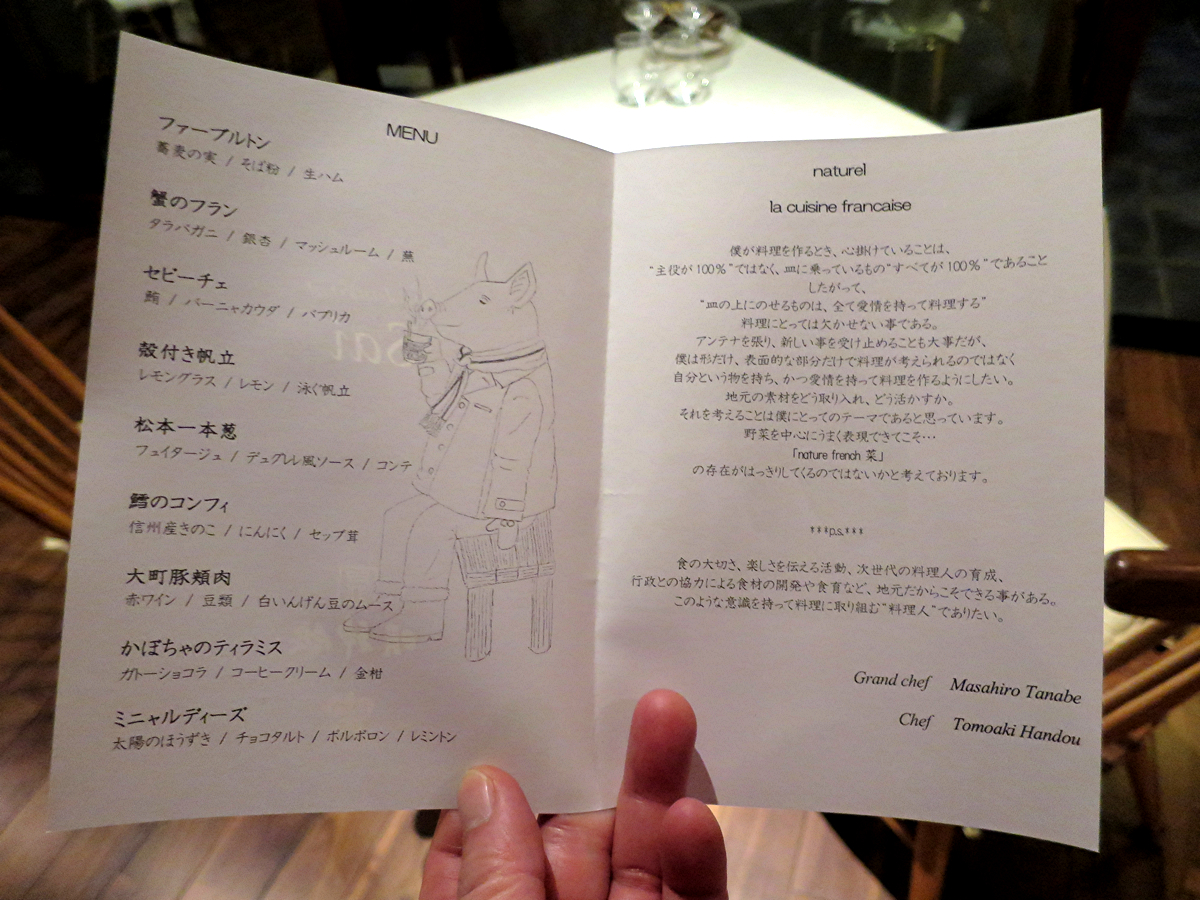 MENU
ファーブルトン
蕎麦の実 / そば粉 / 生ハム
蟹のフラン
タラバガニ / 銀杏 / マッシュルーム / 蕪
セビーチェ
鮪 / バーニャカウダ / パプリカ
殻付き帆立
レモングラス / レモン / 泳ぐ帆立
松本一本葱
フェイタージュ / デュグレル風ソース / コンテ
鱈のコンフィ
信州産きのこ / にんにく / セップ茸
大町豚頬肉
赤ワイン / 豆類 / 白いんげん豆のムース
かぼちゃのティラミス
ガトーショコラ / コーヒークリーム / 金柑
ミニャルディーズ
太陽のほうずき / チョコタルト / ポルボロン / レミントン
naturel
la cuisine francaise
僕が料理を作るとき、心掛けていることは、
“主役が100%”ではなく、皿に乗っているもの“すべてが100%”であること
したがって、
“皿の上にのせるものは、全て愛情を持って料理する”
料理にとっては欠かせない事である。
アンテナを張り、新しい事を受け止めることも大事だが、
僕は形だけ、表面的な部分だけで料理が考えられるのではなく
自分という物を持ち、かつ愛情を持って料理を作るようにしたい。
地元の素材をどう取り入れ、どう活かすか。
それを考えることは僕にとってのテーマであると思っています。
野菜を中心にうまく表現できてこそ…
「nature french 菜」
の存在がはっきりしてくるのではないかと考えております。
***p.s.***
食の大切さ、楽しさを伝える活動、次世代の料理人の育成、
行政との協力による食材の開発や食育など、地元だからこそできる事がある。
このような意識を持って料理に取り組む“料理人”でありたい。
Grand chef Masahiro Tanabe
Chef Tomoaki Handou